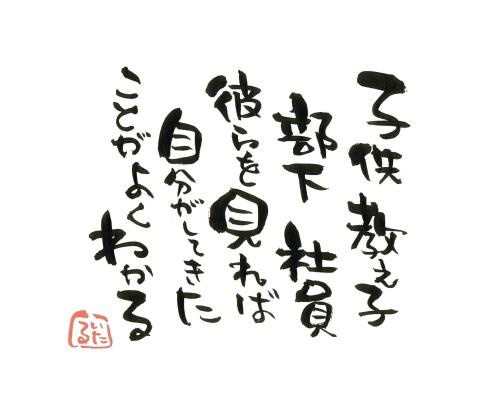 子供 教え子
部下 社員
彼らを見れば
自分がしてきた
ことがよくわかる